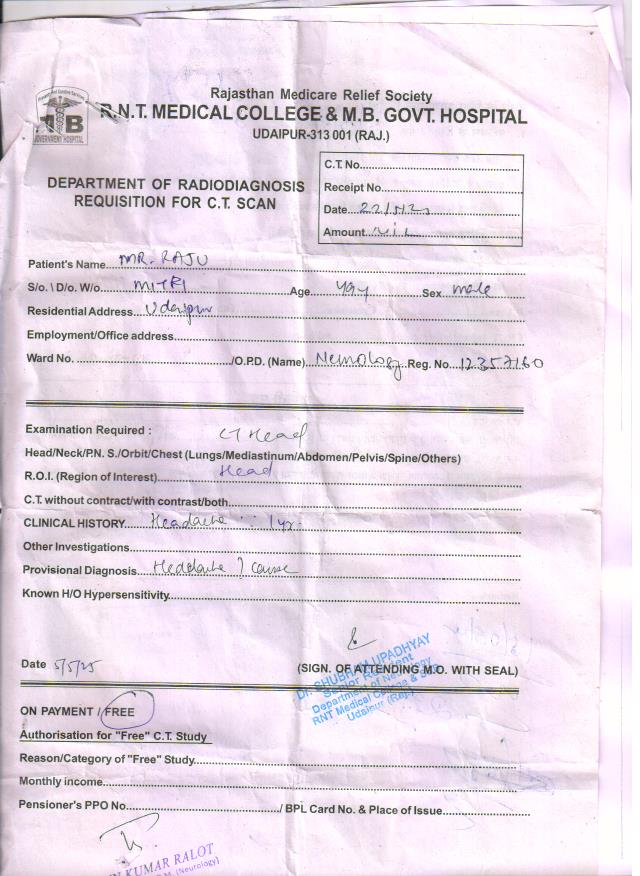 Rajasthan Medicare Relief Society
R.N.T. MEDICAL COLLEGE & M.B. GOVT. HOSPITAL
UDAIPUR-313 001 (RAJ.)
MB
GOVERNMENT HOSPITAL
DEPARTMENT OF RADIODIAGNOSIS
REQUISITION FOR C.T. SCAN
C.T. No.
Receipt No.
Date
Amount Nil
Patient's Name MR. RAJU
S/o. \ D/o. W/o. MITRI Age 49y Sex male
Residential Address Udaipur
Employment/Office address
Ward No. /O.P.D. (Name) Neurology Reg. No.
Examination Required : CT Head
Head/Neck/P.N. S./Orbit/Chest (Lungs/Mediastinum/Abdomen/Pelvis/Spine/Others)
R.O.I. (Region of Interest) Head
C.T. without contract/with contrast/both
CLINICAL HISTORY Headache 1 yr.
Other Investigations
Provisional Diagnosis Headache ? cause
Known H/O Hypersensitivity
Date 5/5/25 (SIGN. OF ATTENDING M.O. WITH SEAL)
Dr. SHUBHAM UPADHYAY
Senior Resident
Department of Neurology
RNT Medical College &
Udaipur (Raj.)
ON PAYMENT / FREE
Authorisation for "Free" C.T. Study
Reason/Category of "Free" Study
Monthly income
Pensioner's PPO No. / BPL Card No. & Place of Issue
KUMAR RALOT
(Neurology)